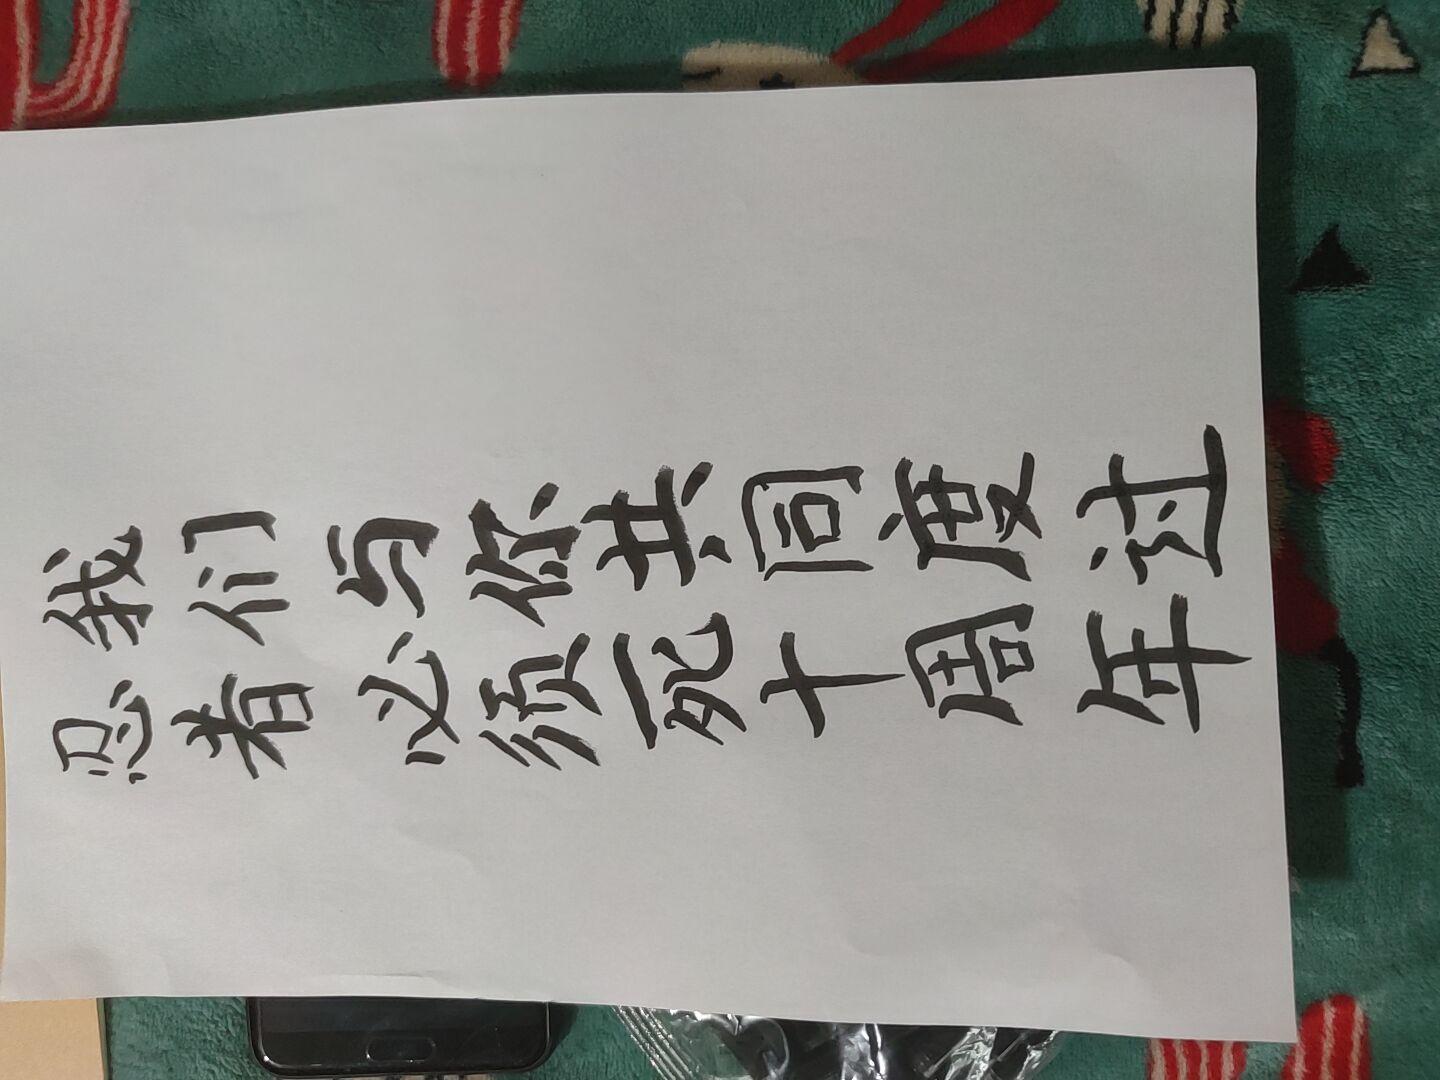 我们与你共同度过
忍者必须死十周年